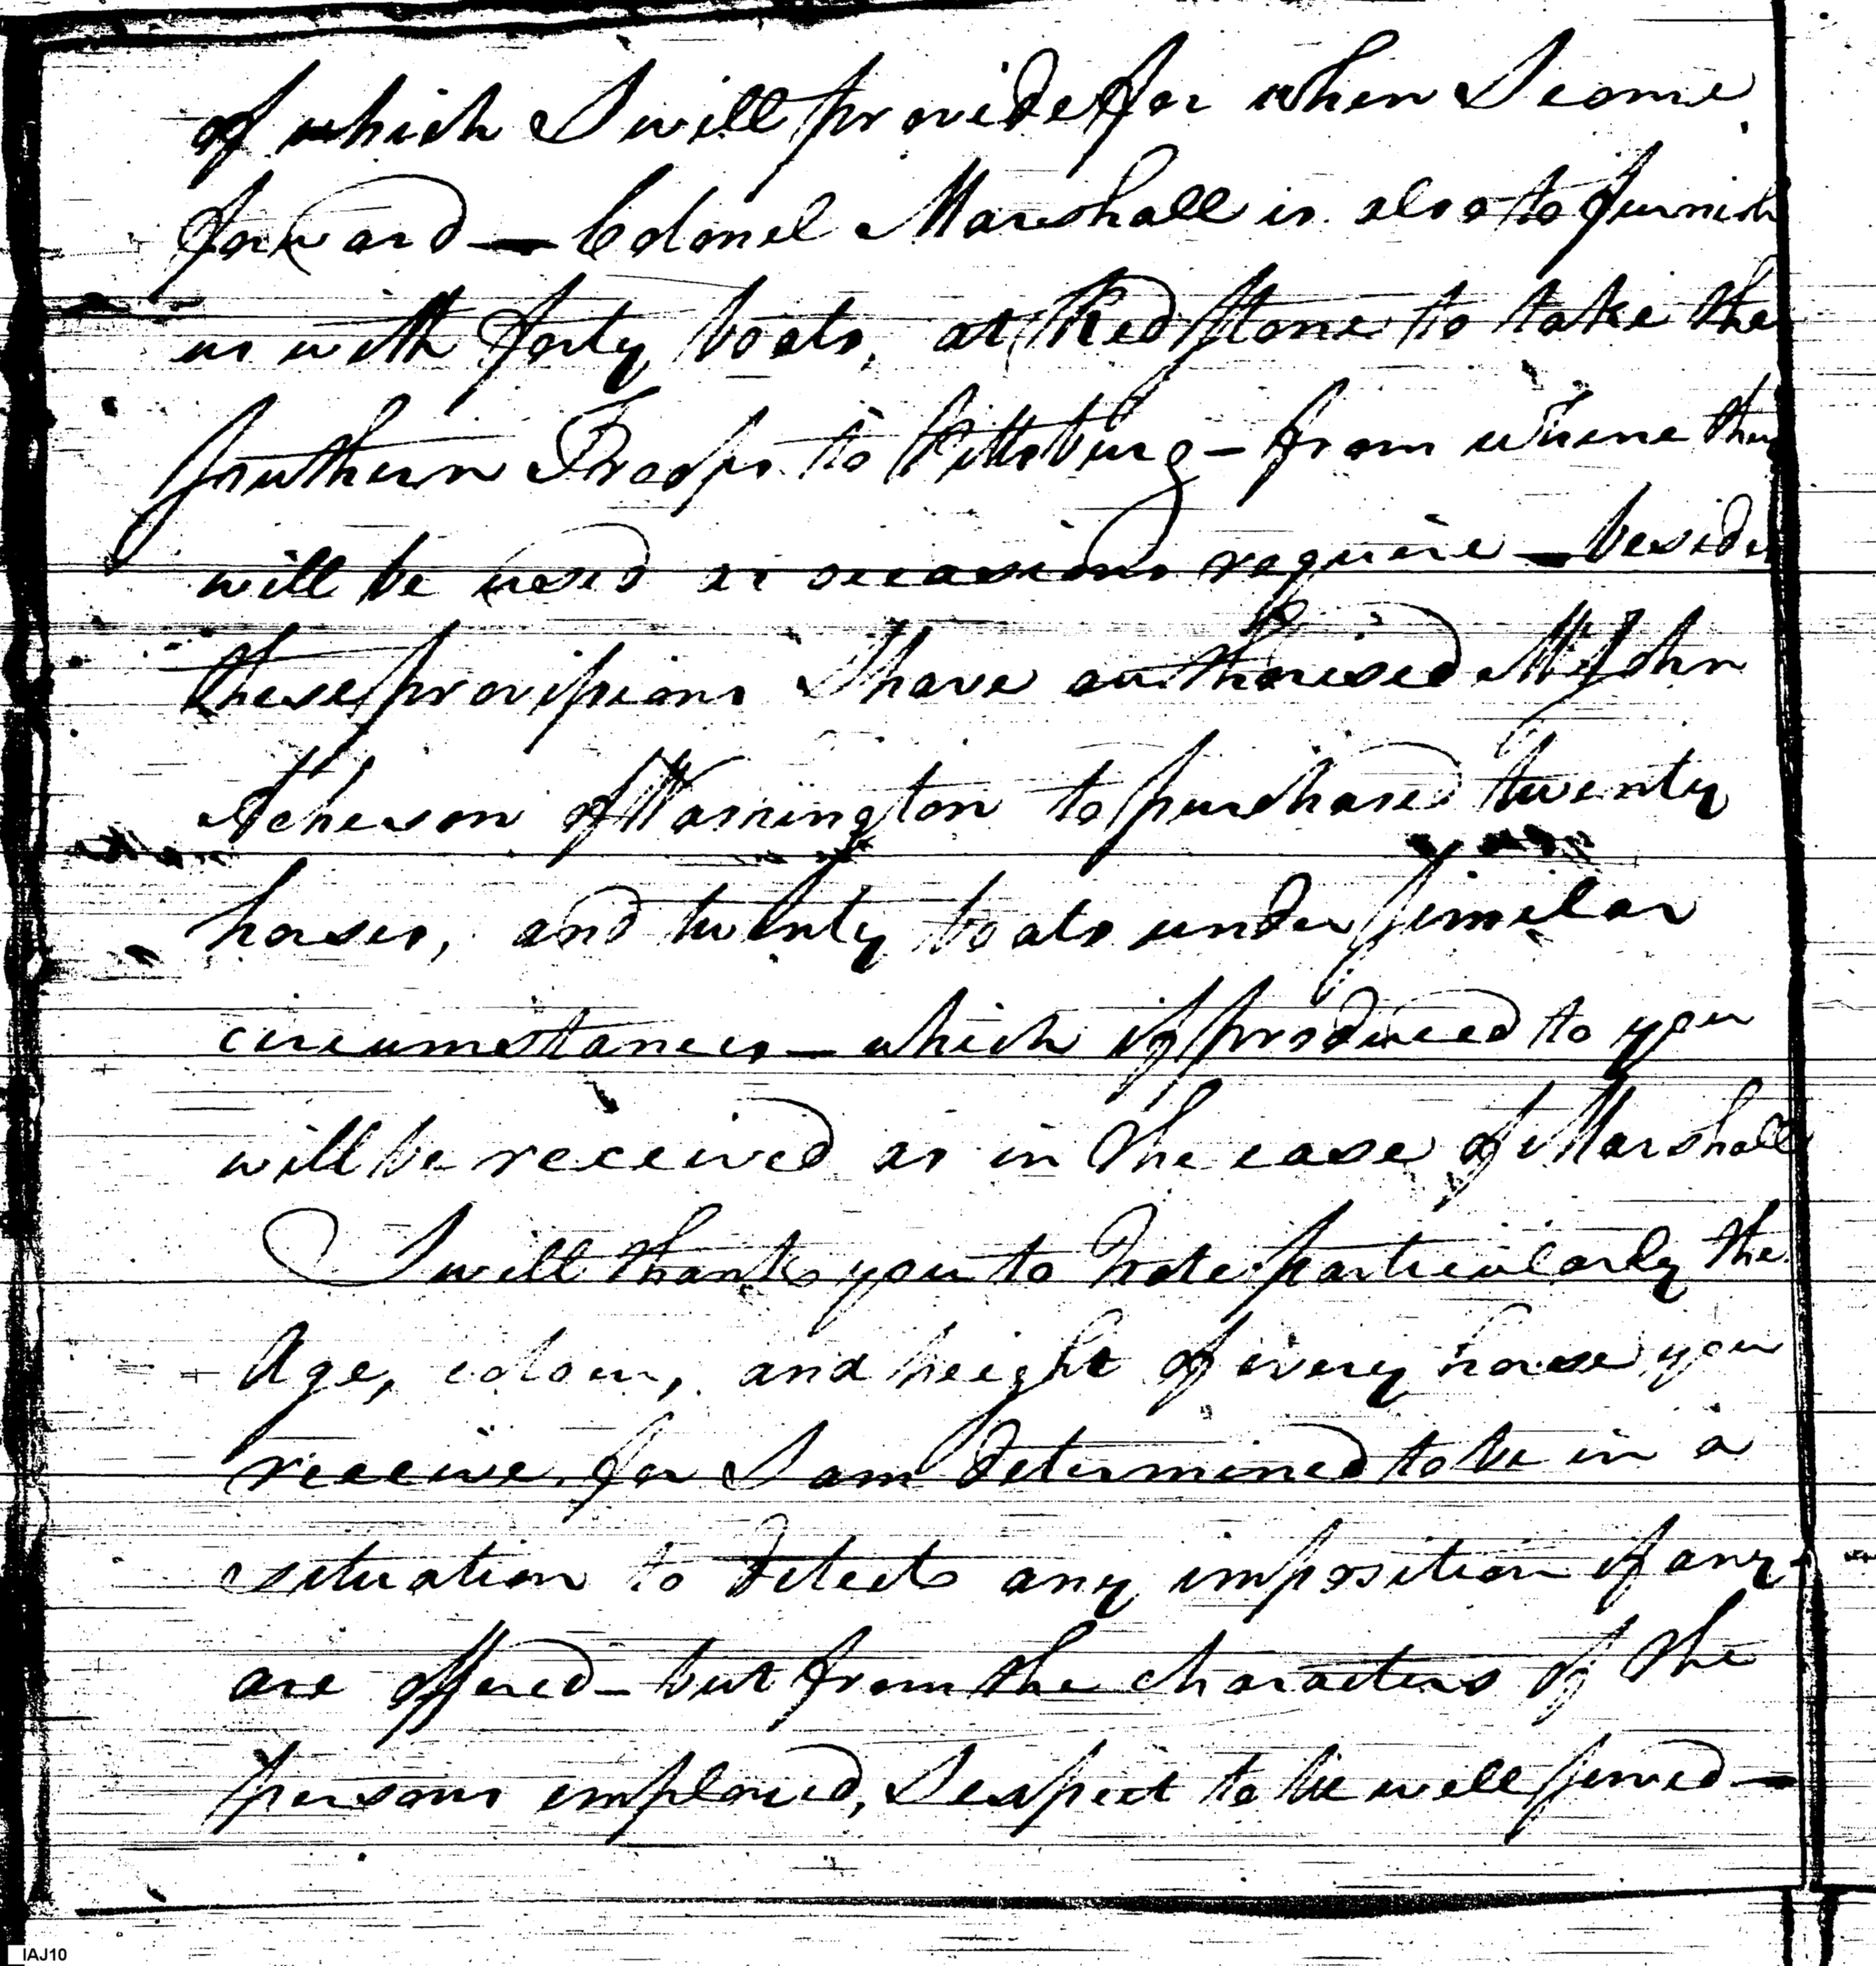 of which I will provide for when I come
forward — Colonel Marshall is also to furnish
us with forty boats, at Red Stone to take the
Southern Troops to Pittsburg — from whene they
will be used as occasions require — besides
these provisions I have authorised Mr John
Acheson of Washington to purchased twenty
horses, and twenty boats under similar
circumstances — which if produced to you
will be received as in the case of Marshall
I will thank you to Note particularly the
Age, colour, and height of every horse you
receive for I am determined to be in a
situation to detect any imposition if any
are offered — but from the characters of the
persons employed, I expect to be well served —
IAJ10